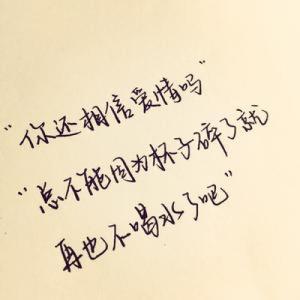 “你还相信爱情吗”
“总不能因为杯子碎了就
再也不喝水了吧”